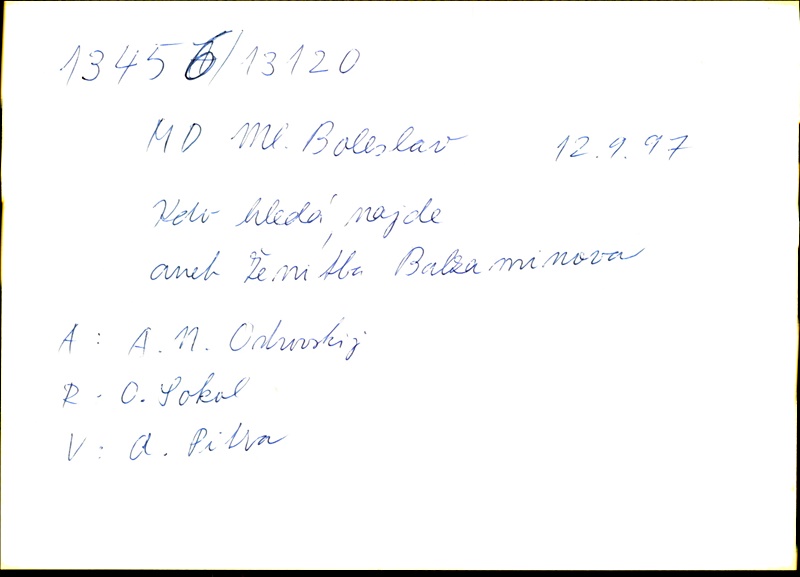 13456/13120
MD Ml. Boleslav 12.9.97
Kdo hledá, najde
aneb Ženitba Balzaminova
A: A. N. Ostrovskij
R. O. Sokol
V: A. Pitra